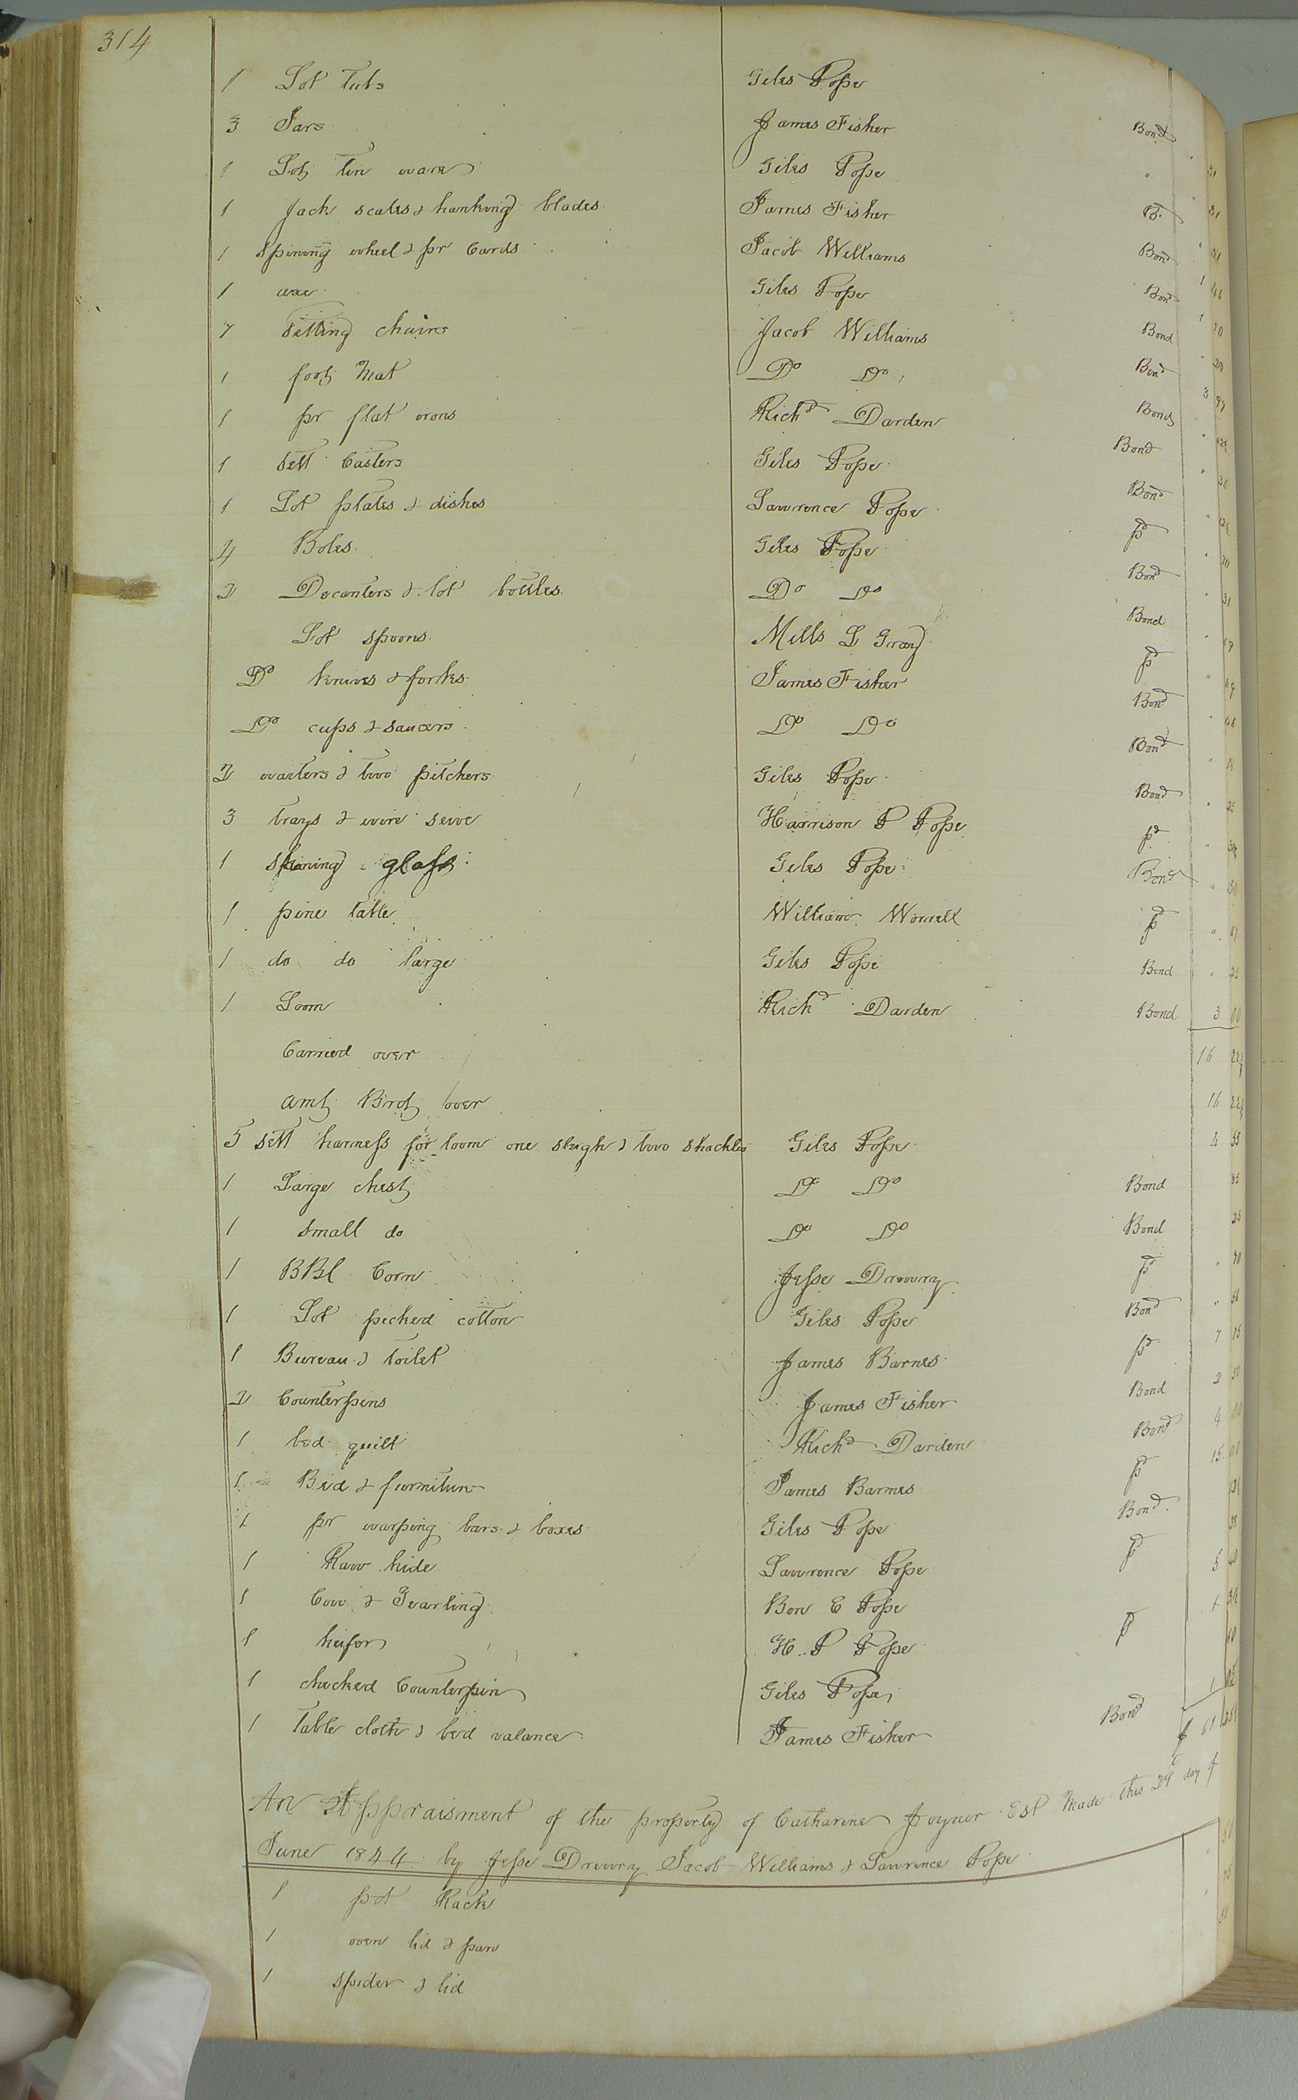 314
1 Lot Tubs Giles Pope
3 Jars James Fisher Bond
1 Lot tin ware Giles Pope "
1 Jack scales & hanking blades James Fisher B.
1 Spining wheel & pr Cards Jacob Williams Bond
1 axe Giles Pope Bond
7 Setting chairs Jacob Williams Bond
1 foot Mat Do Do Bond
1 pr flat irons Richd Darden Bond
1 Sett Casters Giles Pope Bond
1 Lot plates & dishes Lawrence Pope Bond
4 Boles Giles Pope pd
2 Decanters & lot bottles Do Do Bond
Lot spoons Mills L Gray Bond
Do knives & forks James Fisher pd
Do cups & saucers Do Do Bond
2 waiters & two pitchers Giles Pope Bond
3 trays & wire seive Harrison P Pope Bond
1 shaving glass Giles Pope pd
1 pine table William Worrell Bond
1 do do large Giles Pope pd
1 Loom Richd Darden Bond 3 00
Carried over 16
amt Brot over 16
5 sett harness for loom one sleigh & two shackles Giles Pope 4
1 Large chest Do Do Bond
1 Small do Do Do Bond
1 BBl Corn Jesse Drewry pd
1 Lot picked cotton Giles Pope Bond
1 Bureau & toilet James Barnes pd 7
2 Counterpins James Fisher Bond 2
1 bed quilt Richd Darden Bond 4 00
1 Bed & furniture James Barnes pd 15 00
1 pr warping bars & boxes Giles Pope Bond
1 Raw hide Lawrence Pope pd
1 Cow & Yearling Ben E Pope 5
1 heifor H. P Pope pd
1 checked Counterpin Giles Pope
1 Table cloth & bed valance James Fisher Bond
An Appraisment of the property of Catharine Joyner Est Made this 29 day of
June 1844 by Jesse Drewry Jacob Williams & Lawrence Pope
1 pot Rack
1 oven lid & pan
1 Spider & lid